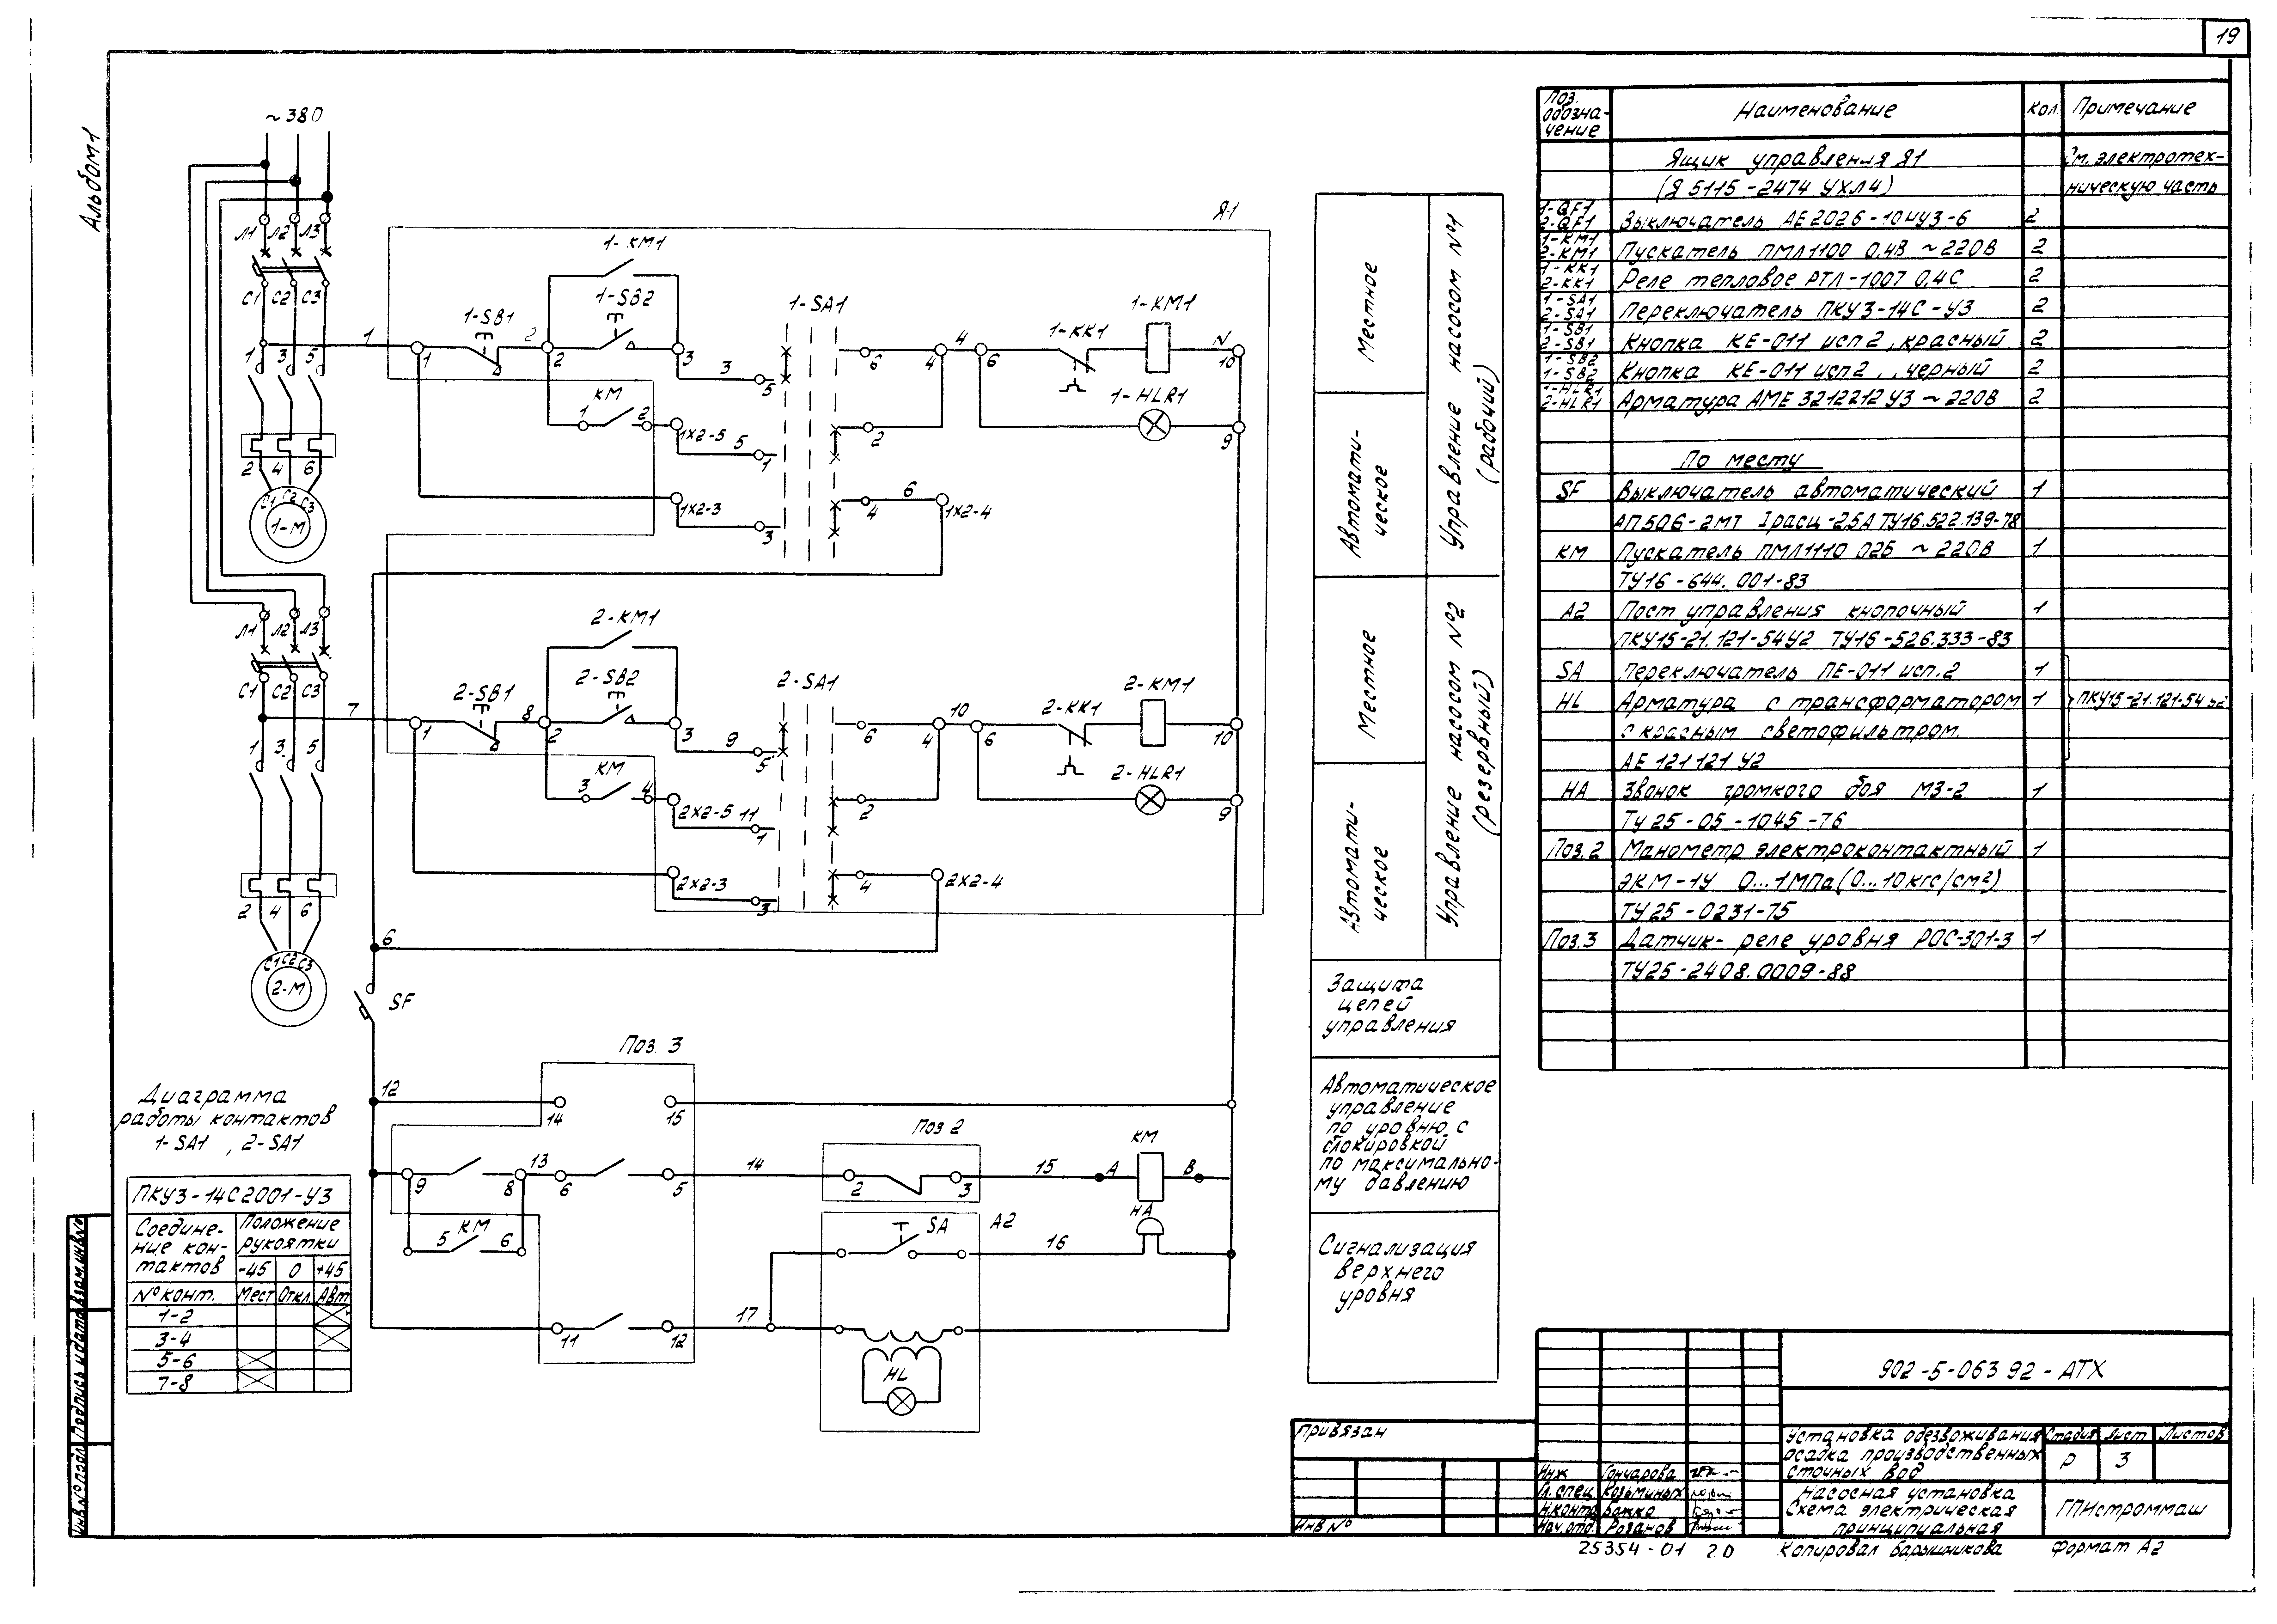 19
Альбом 1
~380
Л1 Л2 Л3
С1 С2 С3
1 3 5
2 4 6
С1 С2 С3
1-М
Л1 Л2 Л3
С1 С2 С3
1 3 5
2 4 6
С1 С2 С3
2-М
Я1
1-КМ1
1-SB2
1-SB1
1-SA1
1-КК1
1-КМ1
1 1 2 2 3 3 5 6 4 4 6 N 10
КМ
1 2
1-HLR1
1Х2-5 5 1 2 9
1Х2-3 3 4 6 1Х2-4
2-КМ1
2-SB2
2-SB1
2-SA1
2-КК1
2-КМ1
7 1 8 2 3 9 5 6 4 10 6 10
КМ
3 4
2-HLR1
2Х2-5 11 1 2 9
2Х2-3 3 4 2Х2-4
6
SF
Поз. 3
12 14 15
Поз 2
КМ
9 8 13 6 5 14 2 3 15 А В
5 КМ 6
SA А2
16
НА
11 12 17
HL
Диаграмма
работы контактов
1-SA1 , 2-SA1
ПКУ3-14С2001-У3
Соедине-
ние кон-
тактов
Положение
рукоятки
-45 0 +45
№ конт. Мест Откл. Авт
1-2
3-4
5-6
7-8
Местное
Автомати-
ческое
Управление насосом №1
(рабочий)
Местное
Автомати-
ческое
Управление насосом №2
(резервный)
Защита
цепей
управления
Автоматическое
управление
по уровню с
блокировкой
по максимально-
му давлению
Сигнализация
верхнего
уровня
Поз.
обозна-
чение
Наименование Кол. Примечание
Ящик управления Я1 См. электротех-
(Я 5115-2474 УХЛ4) ническую часть
1-QF1
2-QF1 Выключатель АЕ2026-10НУ3-б 2
1-КМ1
2-КМ1 Пускатель ПМЛ1100 0,4В ~220В 2
1-КК1
2-КК1 Реле тепловое РТЛ-1007 0,4С 2
1-SA1
2-SA1 Переключатель ПКУ3-14С-У3 2
1-SB1
2-SB1 Кнопка КЕ-011 исп 2, красный 2
1-SB2
1-SB2 Кнопка КЕ-011 исп 2, , черный 2
1-HLR1
2-HLR1 Арматура АМЕ 3212212 У3 ~220В 2
По месту
SF Выключатель автоматический 1
АП50Б-2МТ Iрасц-2,5А ТУ16.522.139-78
КМ Пускатель ПМЛ1110 02Б ~220В 1
ТУ16-644.001-83
А2 Пост управления кнопочный 1
ПКУ15-21.121-54У2 ТУ16-526.333-83
SA Переключатель ПЕ-011 исп.2 1
HL Арматура с трансформатором 1 ПКУ15-21.121-54 У2
с красным светофильтром.
АЕ 121121 У2
НА Звонок громкого боя МЗ-2 1
ТУ 25-05-1045-76
Поз.2 Манометр электроконтактный 1
ЭКМ-1У 0...1МПа (0...10кгс/см²)
ТУ25-0231-75
Поз.3 Датчик-реле уровня РОС-301-3 1
ТУ25-2408.0009-88
902-5-063 92-АТХ
Установка обезвоживания
осадка производственных
сточных вод
Стадия Лист Листов
Р 3
Насосная установка
Схема электрическая
принципиальная
ГПИстроммаш
Инж Гончарова
Гл. спец Козьминых
Н.контр Божко
Нач.отд. Розанов
Привязан
Инв №
25354-01 20
Копировал Барышникова Формат А2
Инв.№ подл. Подпись и дата Взам.инв.№